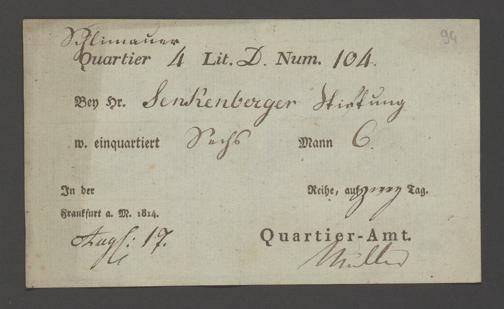 94
Quartier 4 Lit. D. Num. 104.
Bey Hr. Senkenberger Stiftung
w. einquartiert Sechs Mann 6
In der Reihe, auf zwey Tag.
Frankfurt a. M. 1814.
Augs: 17.
Quartier-Amt.
Müller